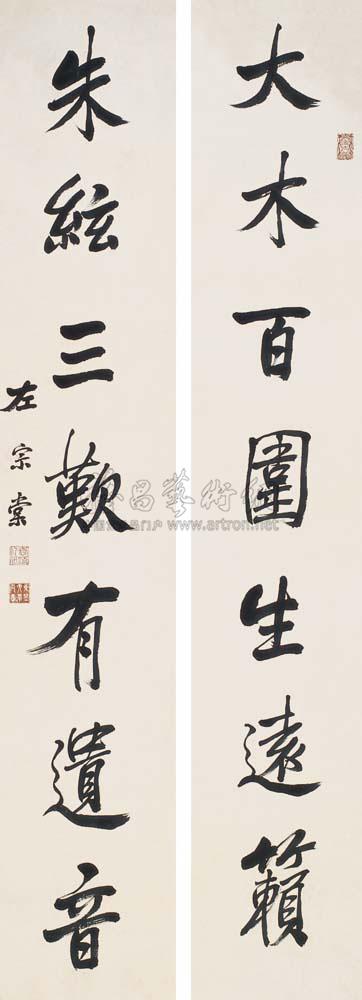 大木百圍生遠籟
朱絃三歎有遺音
左宗棠
www.artron.net